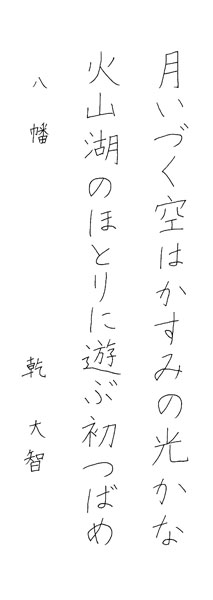 月いづく空はかすみの光かな
火山湖のほとりに遊ぶ初つばめ
八幡　乾大智